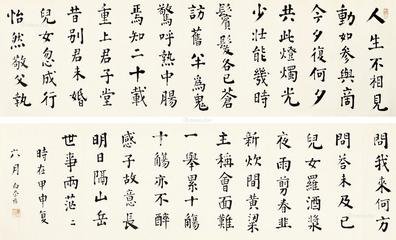 人生不相見
動如參與商
今夕復何夕
共此燈燭光
少壯能幾時
鬢髮各已蒼
訪舊半為鬼
驚呼熱中腸
焉知二十載
重上君子堂
昔別君未婚
兒女忽成行
怡然敬父執
問我來何方
問答未及已
兒女羅酒漿
夜雨剪春韭
新炊間黃粱
主稱會面難
一舉累十觴
十觴亦不醉
感子故意長
明日隔山岳
世事兩茫〻
時在甲申夏
六月